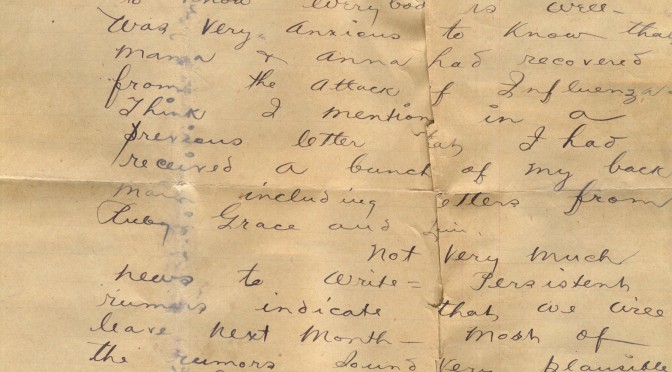 to know everybody is well-
Was very anxious to know that
Mama & Anna had recovered
from the attack of Influenza-
Think I mention in a
previous letter that I had
received a bunch of my back
mail including letters from
Ruby Grace and
Not very much
news to write= Persistent
rumors indicate that we will
leave next month— Most of
the rumors sound very plausible